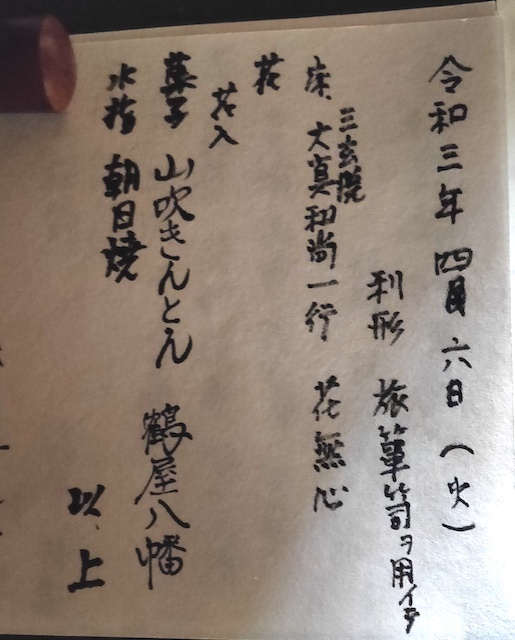 令和三年 四月 六日 (火)
利形 旅簞笥ヲ用イテ
床、三玄院
大真和尚一行 花無心
花
花入
菓子 山吹きんとん 鶴屋八幡
水指 朝日焼
以上